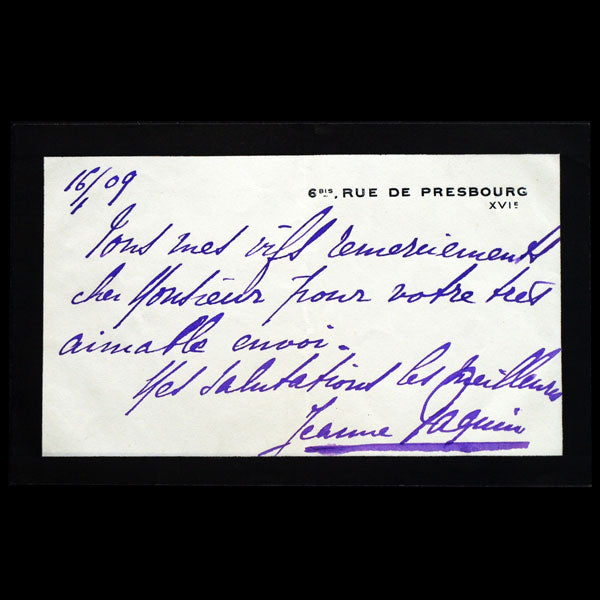 16/1 09
6BIS, RUE DE PRESBOURG
XVIE
Tous mes vifs remerciements
cher Monsieur pour votre très
aimable envoi.
Mes salutations les meilleures
Jeanne Paquin